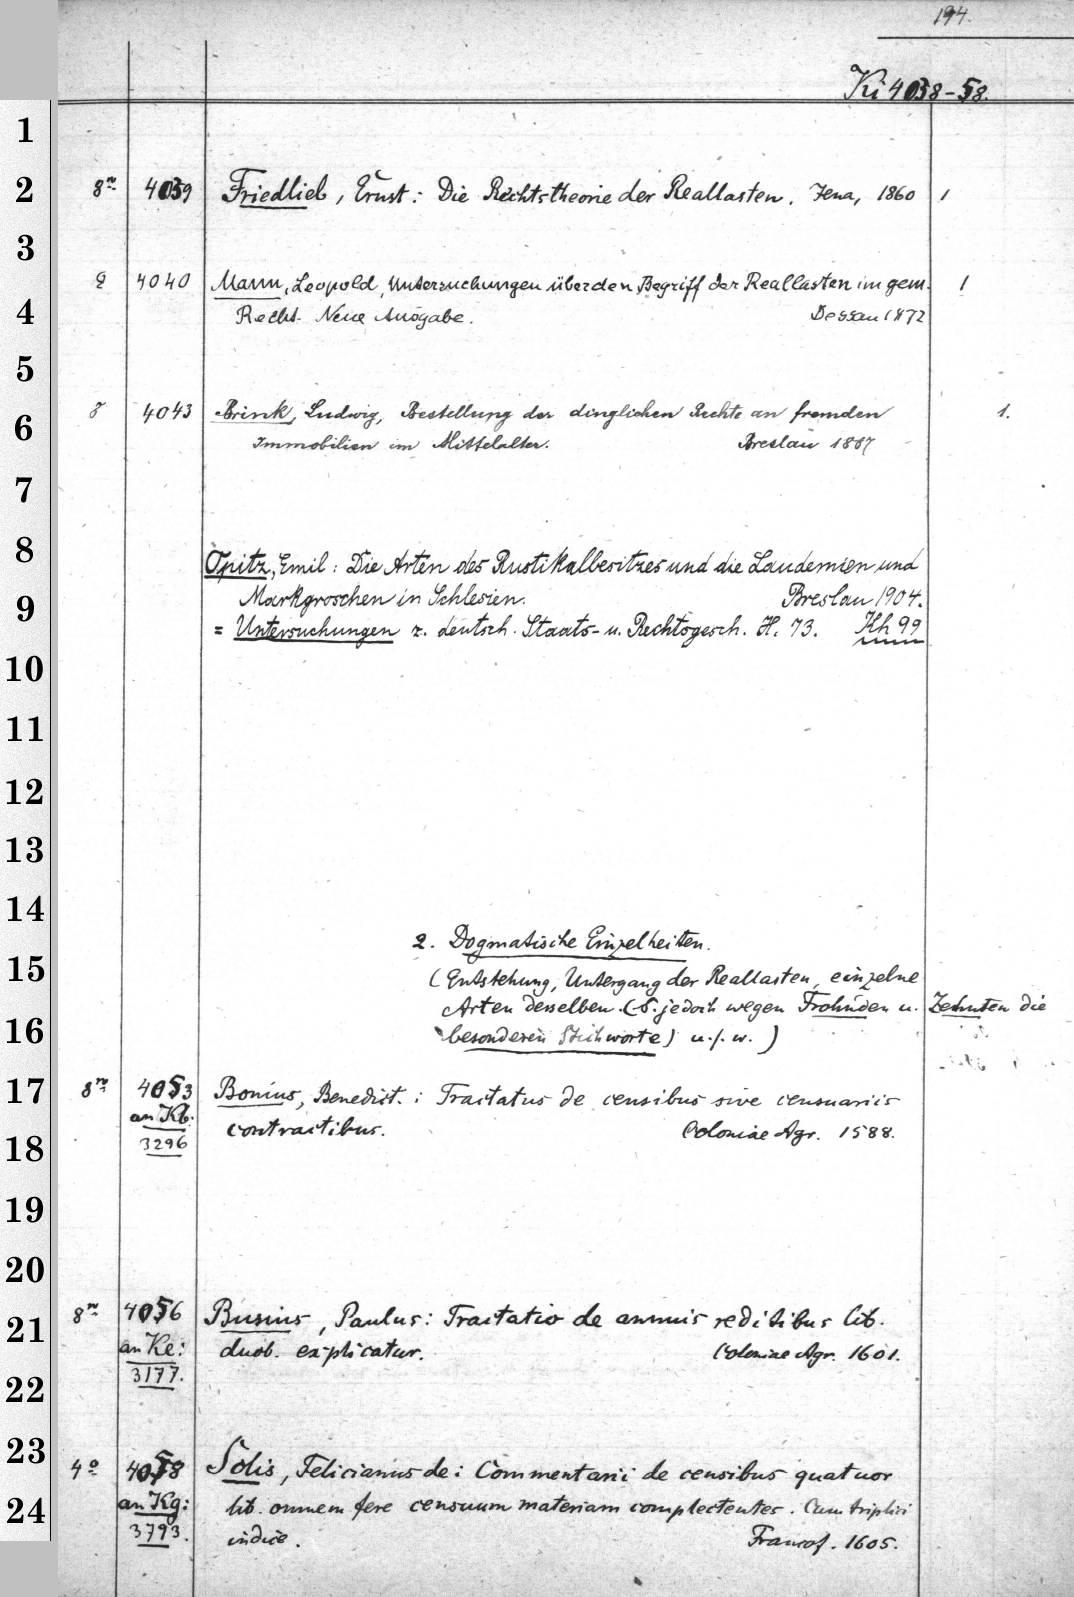 194.
Ki 4038-58.
1
2 8º 4039 Friedlieb, Ernst: Die Rechtstheorie der Reallasten. Jena, 1860 1
3 8 4040 Mann, Leopold, Untersuchungen über den Begriff der Reallasten im gem. 1
4 Recht. Neue Ausgabe. Dessau 1872
5
6 8 4043 Brink, Ludwig, Bestellung der dinglichen Rechte an fremden 1.
Immobilien im Mittelalter. Breslau 1887
7
8 Opitz, Emil: Die Arten des Rustikalbesitzes und die Laudemien und
9 Markgroschen in Schlesien. Breslau 1904.
= Untersuchungen z. deutsch. Staats- u. Rechtsgesch. H. 73. Kh 99
10
11
12
13
14
2. Dogmatische Einzelheiten.
15 (Entstehung, Untergang der Reallasten, einzelne
Arten derselben. (S. jedoch wegen Frohnden u. Zehnten die
16 besonderen Stichworte) u.s.w.)
17 8º 4053 Bonius, Benedict.: Tractatus de censibus sive censuariis
an Kb: contractibus. Coloniae Agr. 1588.
18 3296
19
20
21 8º 4056 Busius, Paulus: Tractatio de annuis reditibus lib.
an Ke: duob. explicatur. Coloniae Agr. 1601.
22 3177.
23 4º 4058 Solis, Felicianus de: Commentarii de censibus quatuor
24 an Kg: lib. omnem fere censuum materiam complectentes. Cum triplici
3793. indice. Francof. 1605.